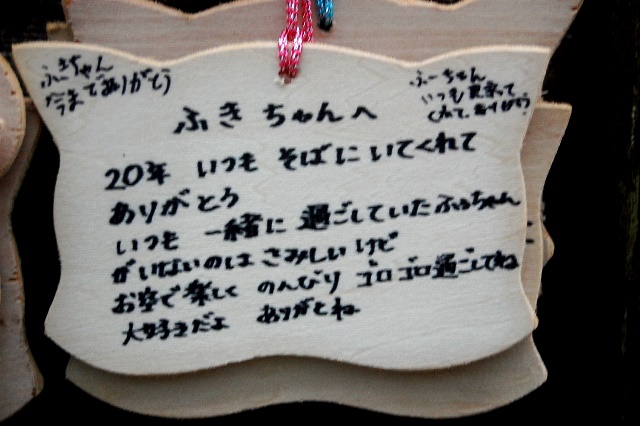 ふーちゃん
今までありがとう
ふーちゃん
いつも見守って
くれて、ありがとう
ふきちゃんへ
20年 いつも そばにいてくれて
ありがとう
いつも 一緒に 過ごしていたふぅちゃん
がいないのは さみしい けど
お空で楽しく のんびり ゴロゴロ過ごしてね
大好きだよ ありがとね